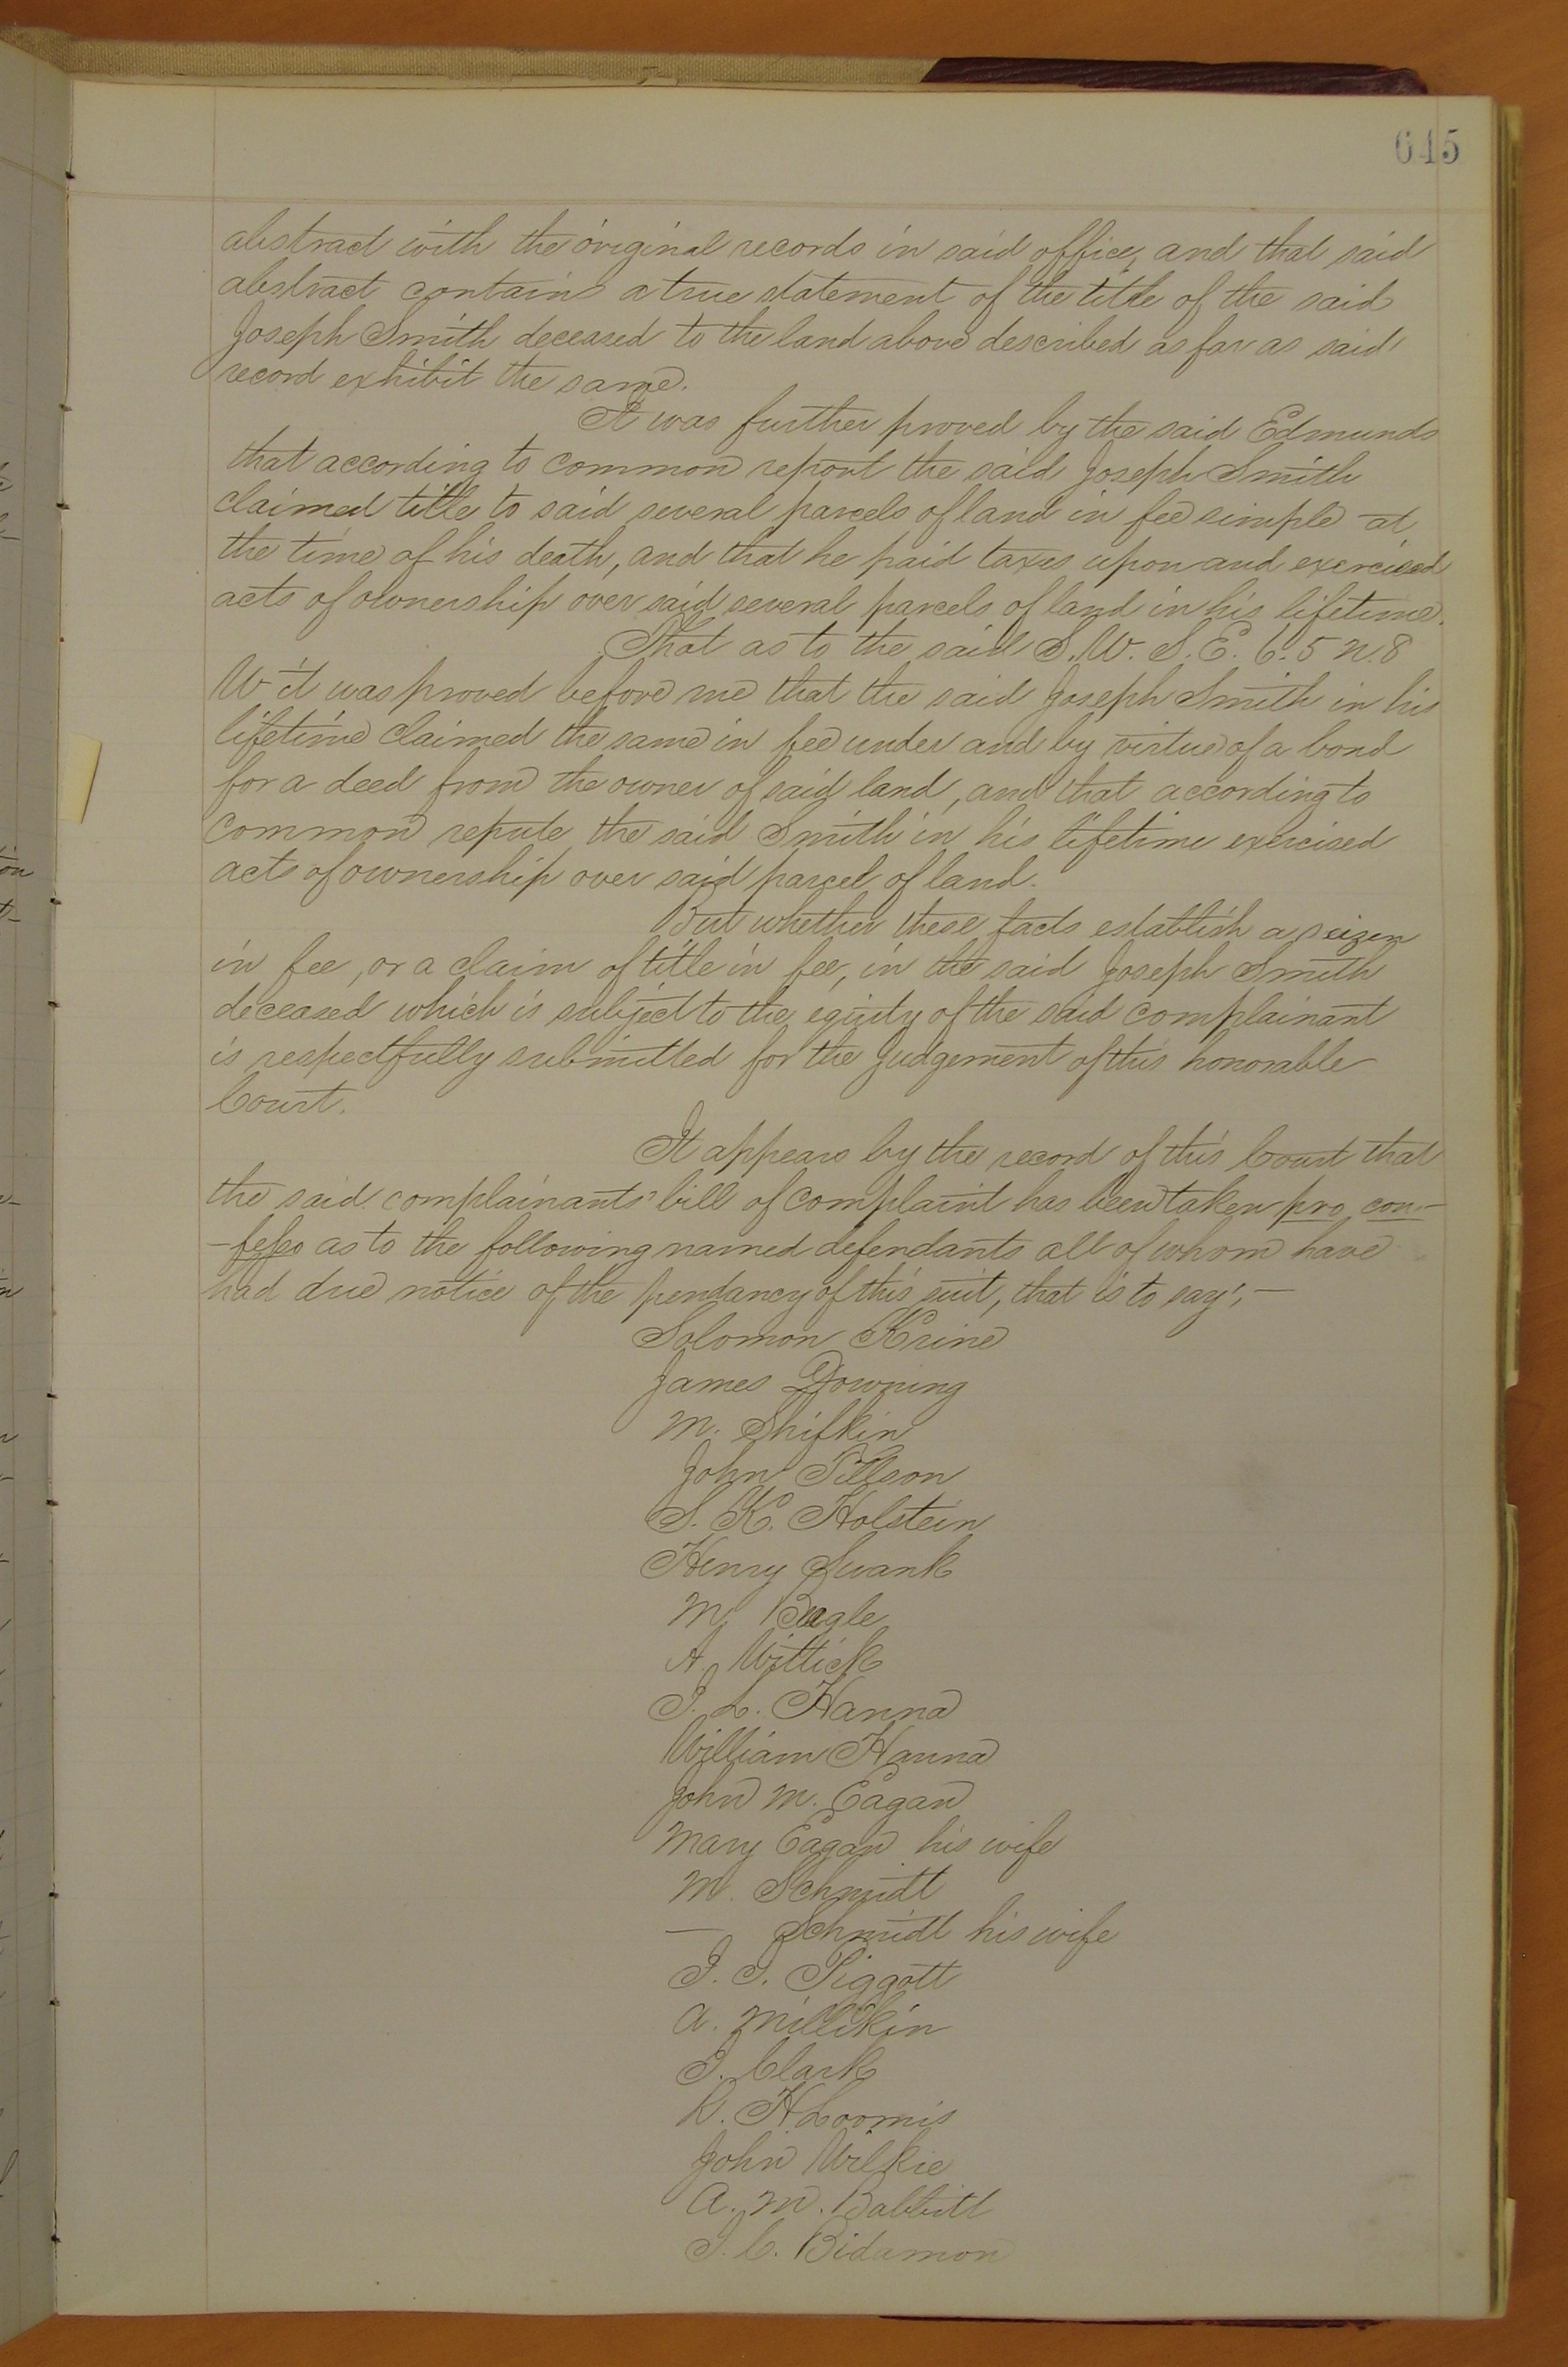 645
abstract with the original records in said office, and that said
abstract contains a true statement of the title of the said
Joseph Smith deceased to the land above described as far as said
record exhibit the same.
It was further proved by the said Edmunds
that according to common report the said Joseph Smith
claimed title to said several parcels of land in fee simple at
the time of his death, and that he paid taxes upon and exercised
acts of ownership over said several parcels of land in his lifetime.
That as to the said S.W. S.E. 6. 5 N. 8
W it was proved before me that the said Joseph Smith in his
lifetime claimed the same in fee under and by virtue of a bond
for a deed from the owner of said land, and that according to
common repute the said Smith in his lifetime exercised
acts of ownership over said parcel of land.
But whether these facts establish a seizen
in fee, or a claim of title in fee, in the said Joseph Smith
deceased which is subject to the equity of the said complainant
is respectfully submitted for the Judgement of this honorable
Court.
It appears by the record of this Court that
the said complainants' bill of complaint has been taken pro con-
-fesso as to the following named defendants all of whom have
had due notice of the pendancy of this suit, that is to say; —
Solomon Krine
James Downing
M. Shifkin
John Tillson
S. K. Holstein
Henry Swank
M. Bugle
A. Wittick
I. L. Hanna
William Hanna
John M. Eagan
Mary Eagan his wife
M. Schmidt
— Schmidt his wife
I. I. Piggott
A. Millikin
I. Clark
R. H. Loomis
John Wilkie
A. M. Babbitt
I. C. Bidamon